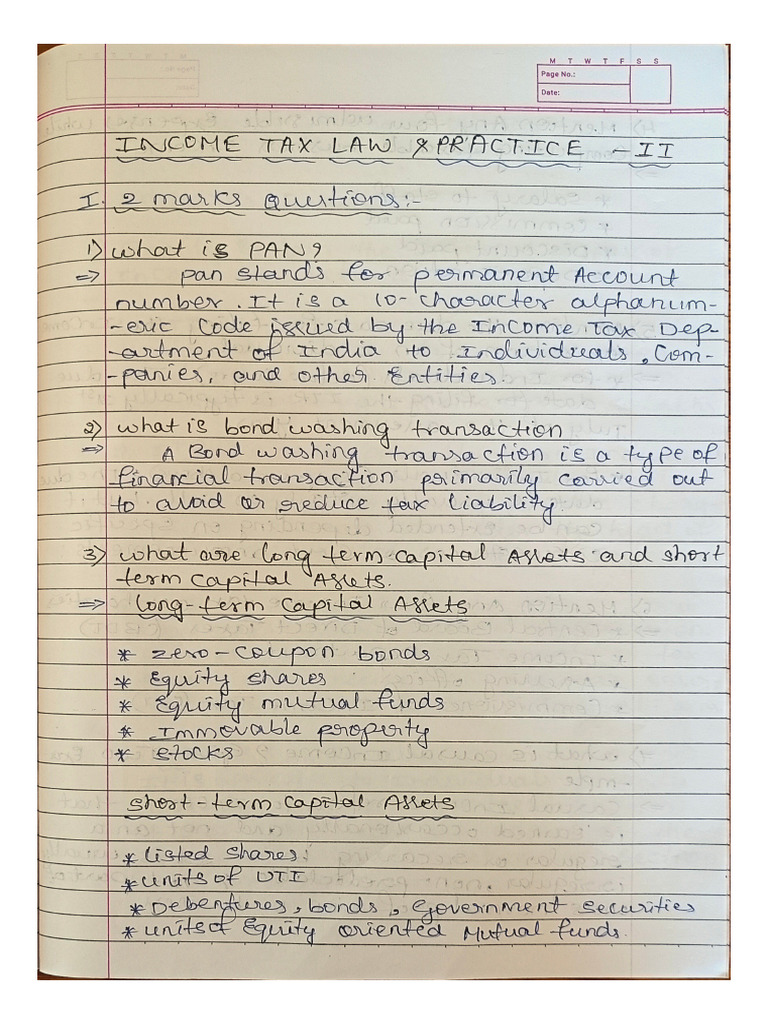 M T W T F S S
Page No.:
Date:
INCOME TAX LAW & PRACTICE - II
I. 2 marks Questions:-
1) What is PAN?
=> pan stands for permanent Account
number. It is a 10-character alphanum-
-eric Code issued by the Income Tax Dep-
-artment of India to Individuals, Com-
-panies, and other Entities.
2) what is bond washing transaction
=> A Bond washing transaction is a type of
financial transaction primarily carried out
to avoid or reduce tax liability
3) what are long term capital Assets and short
term capital Assets.
=> Long-term Capital Assets
* zero-coupon bonds
* Equity shares
* Equity mutual funds
* Immovable property
* stocks
short-term capital Assets
* listed shares:
* units of UTI
* Debentures, bonds, Government securities
* units of Equity oriented Mutual funds.